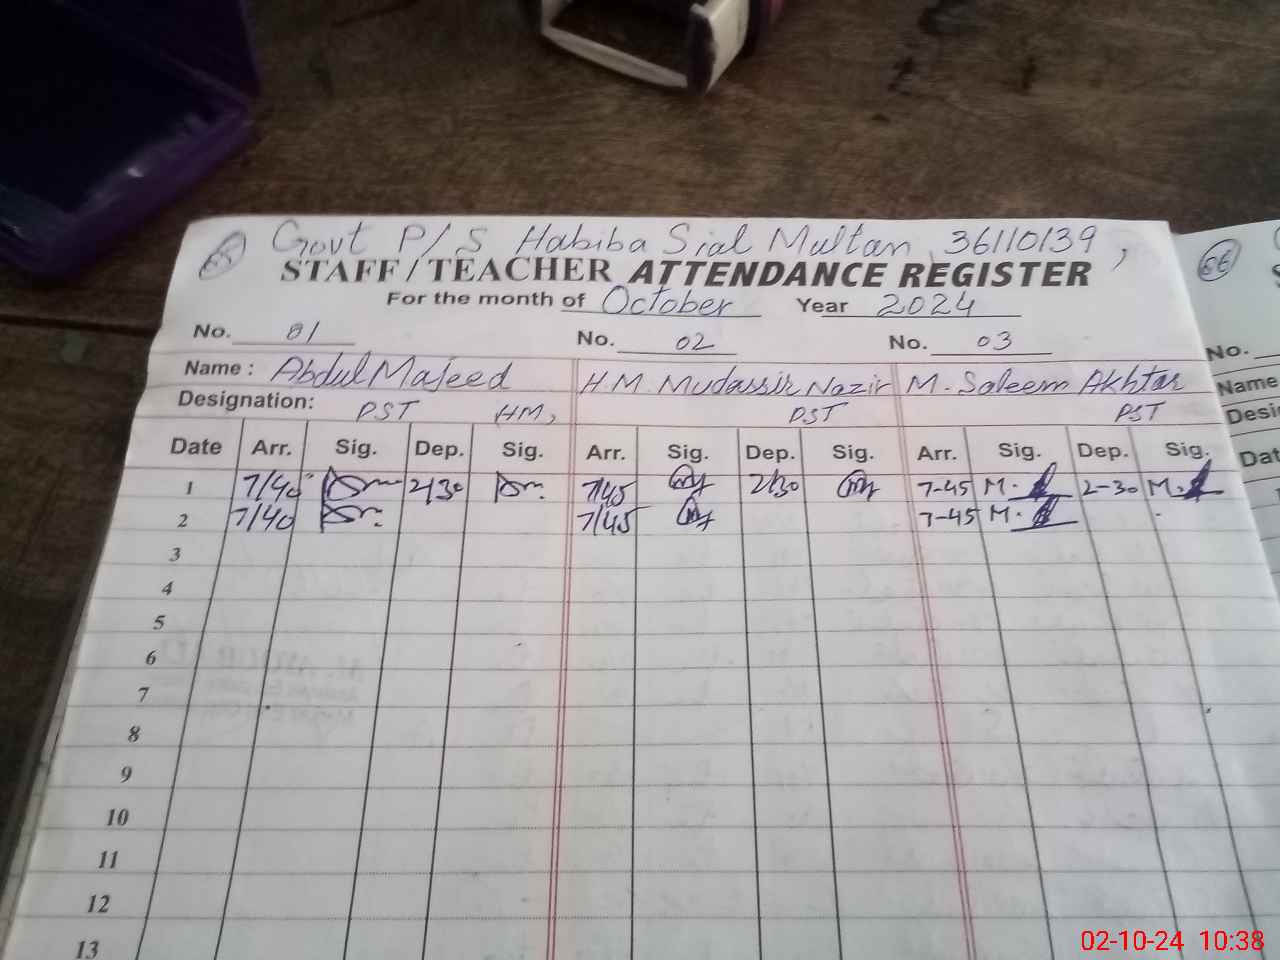 65 Govt P/S Habiba Sial Multan 36110139,
STAFF/TEACHER ATTENDANCE REGISTER
For the month of October Year 2024
No. 01 No. 02 No. 03
Name: Abdul Majeed H.M. Mudassir Nazir M. Saleem Akhtar
Designation: PST HM, PST PST
Date Arr. Sig. Dep. Sig. Arr. Sig. Dep. Sig. Arr. Sig. Dep. Sig.
1 7/40 2/30 7/45 2/30 7-45 M. 2-30 M.
2 7/40 7/45 7-45 M.
3
4
5
6
7
8
9
10
11
12
13
66
No.
Name
Desi
Dat
02-10-24 10:38